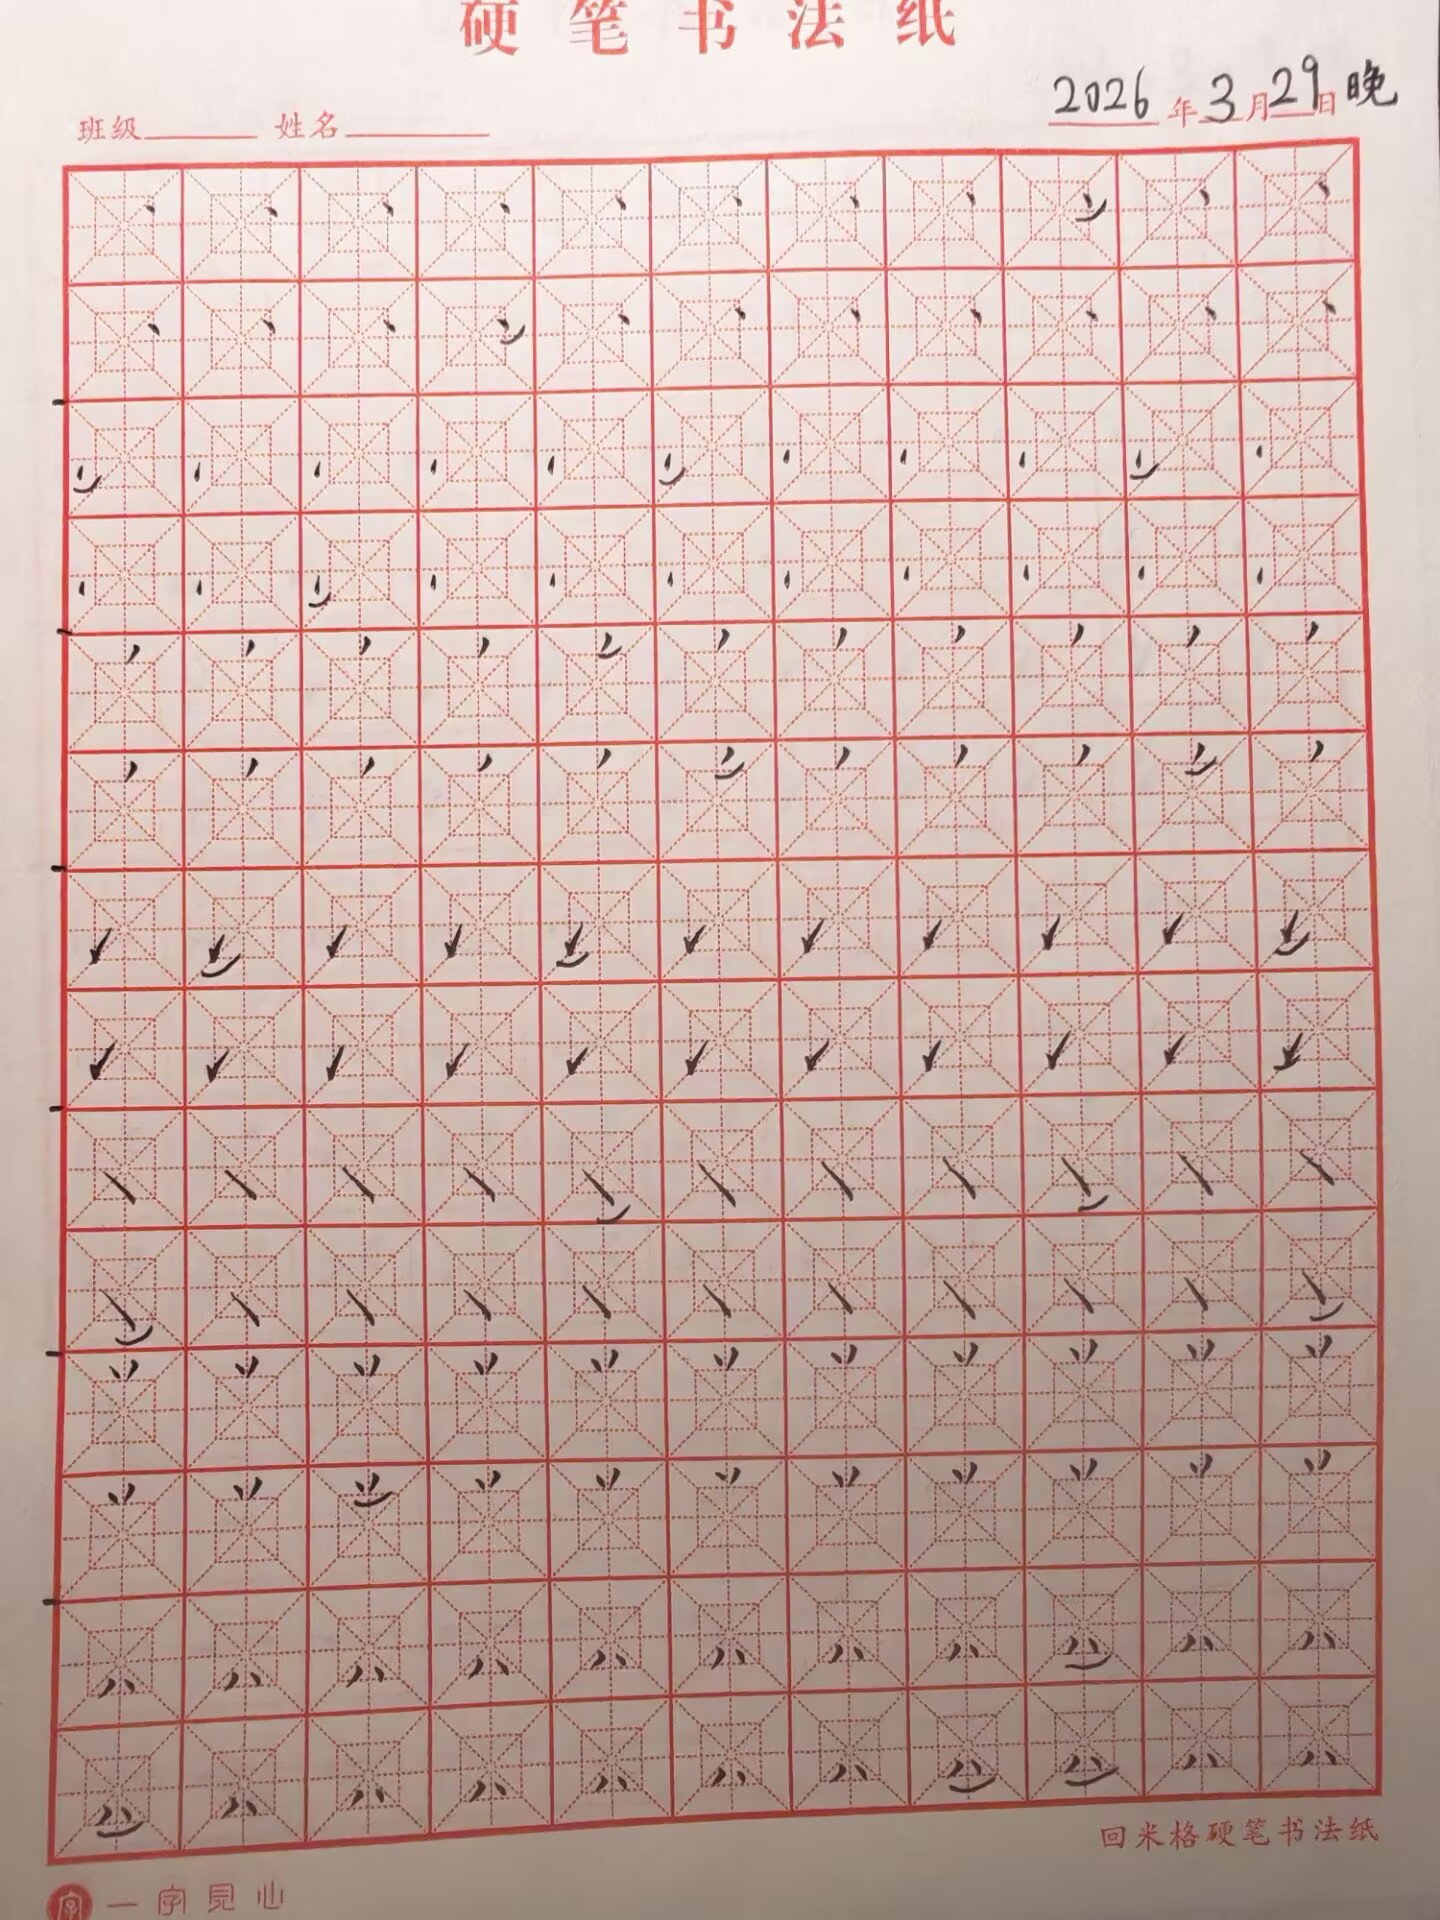 硬笔书法纸
班级 姓名 2026年3月29日晚
回米格硬笔书法纸
字 一字見心